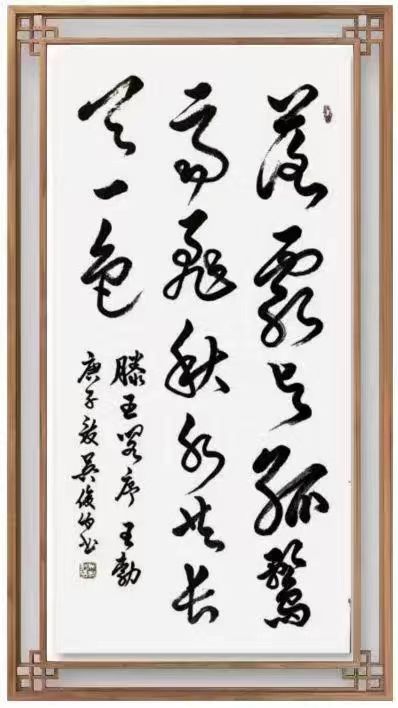 落霞与孤鹜
齐飛秋水共长
天一色
滕王阁序 王勃
庚子 吴俊 书